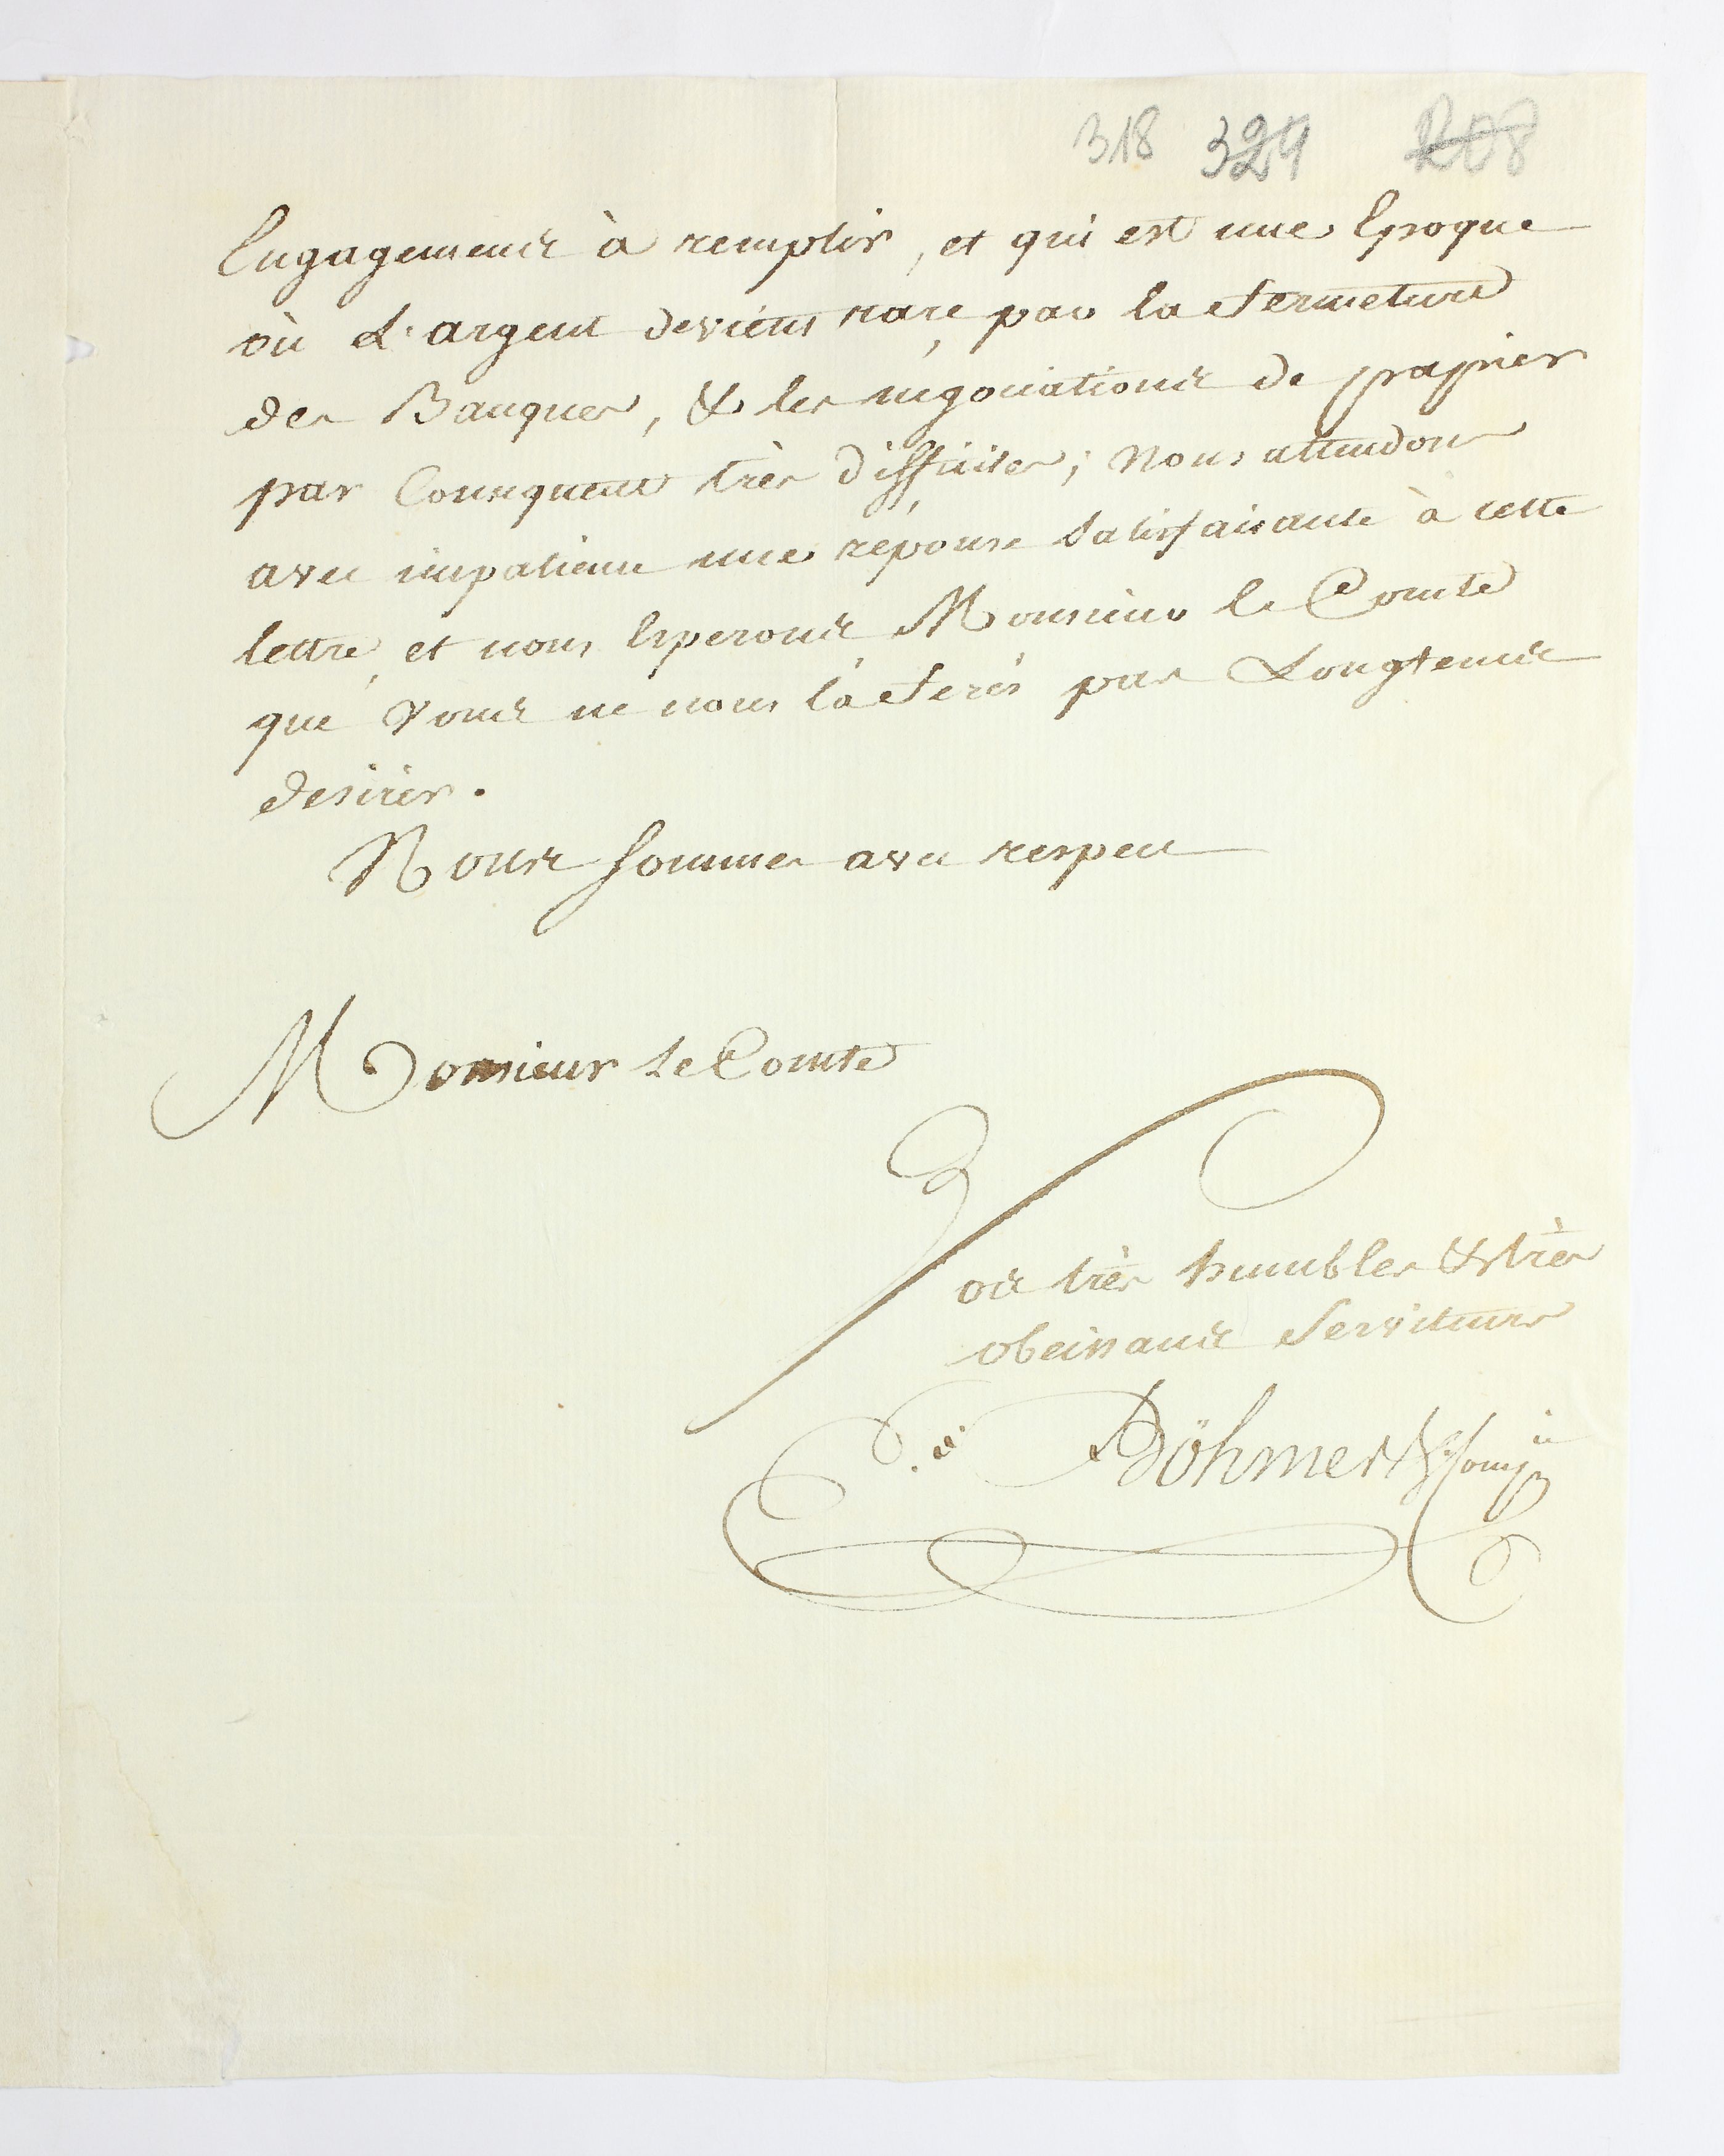 318 324 208
Engagements à remplir, et qui est une Epoque
où L'argent devient rare, par la fermeture
des Banques, & les negociations de papier
par Consequent très diffiiciles; nous attendons
avec impatience une réponse satisfaisante à cette
lettre, et nous Esperons Monsieur le Comte
que vous ne nous la ferés pas Longtems
desirer.
Nous sommes avec respect
Monsieur le Comte
Vos très humbles & très
obeissants Serviteurs
Böhmer & Comp